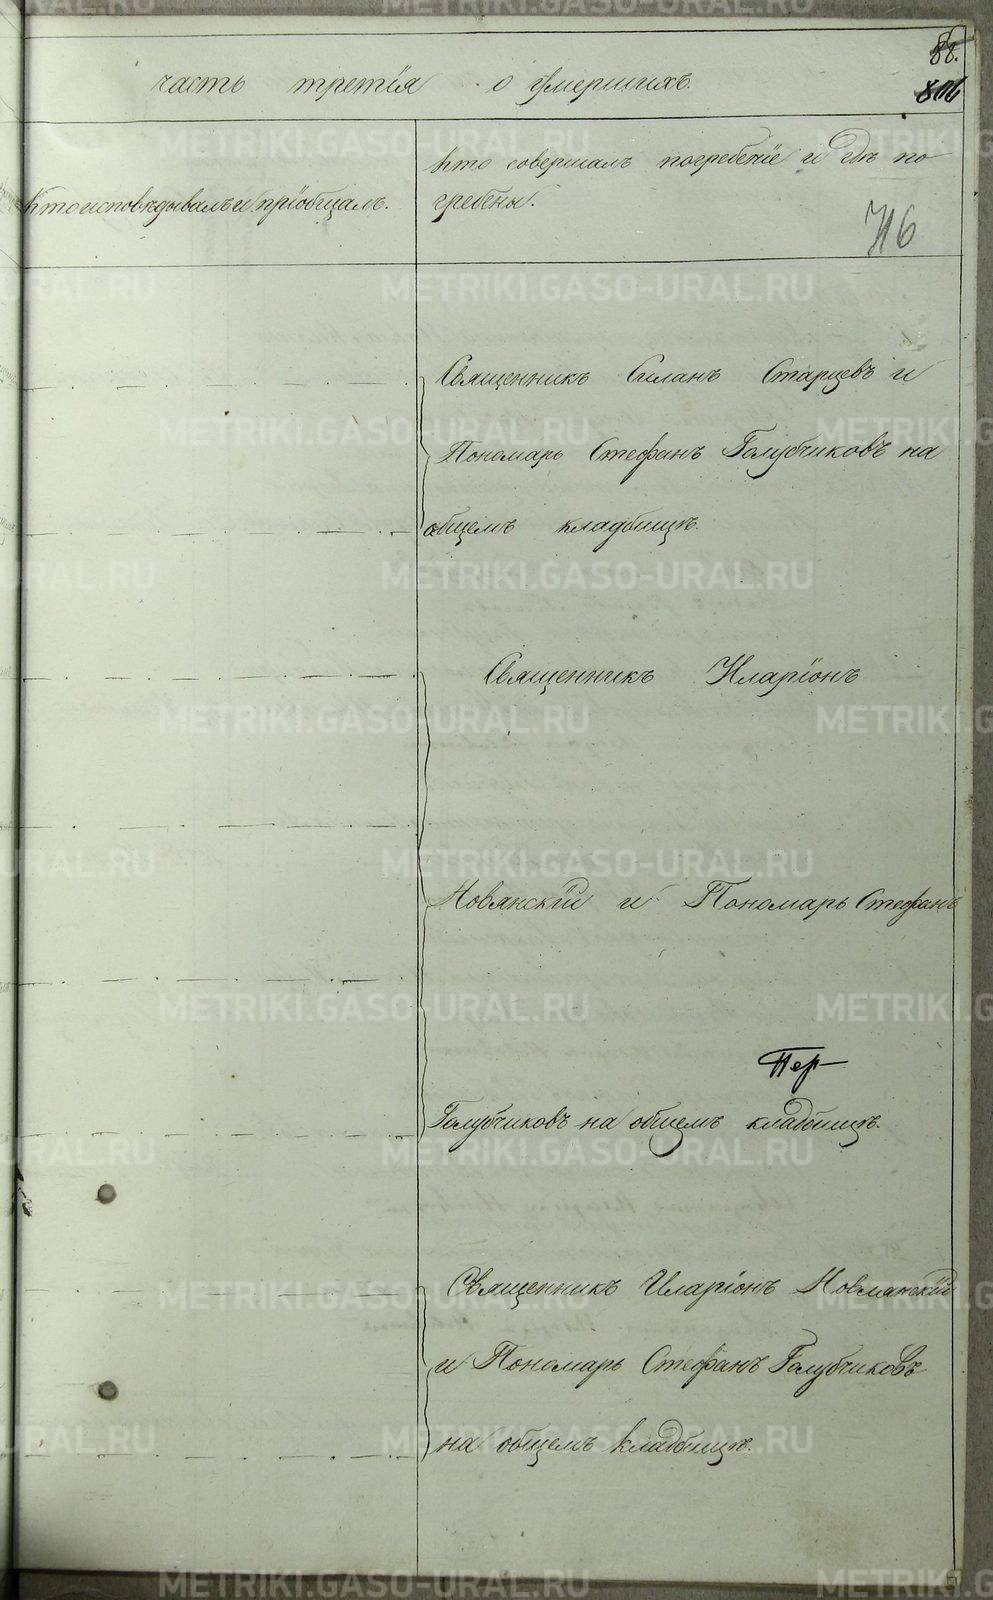 88.
806
часть третія о умершихъ.
Кто исповѣдывалъ и пріобщалъ.
кто совершалъ погребеніе и гдѣ по
гребены.
716
Священникъ Силанъ Старцевъ и
Пономарь Стефанъ Голубчиковъ на
общемъ кладбищѣ.
Священникъ Иларіонъ
Новлянскій и Пономарь Стефанъ
Пер
Голубчиковъ на общемъ кладбищѣ.
Священникъ Иларіонъ Новлянскій
и Пономарь Стефанъ Голубчиковъ
на общемъ кладбищѣ.
METRIKI.GASO-URAL.RU